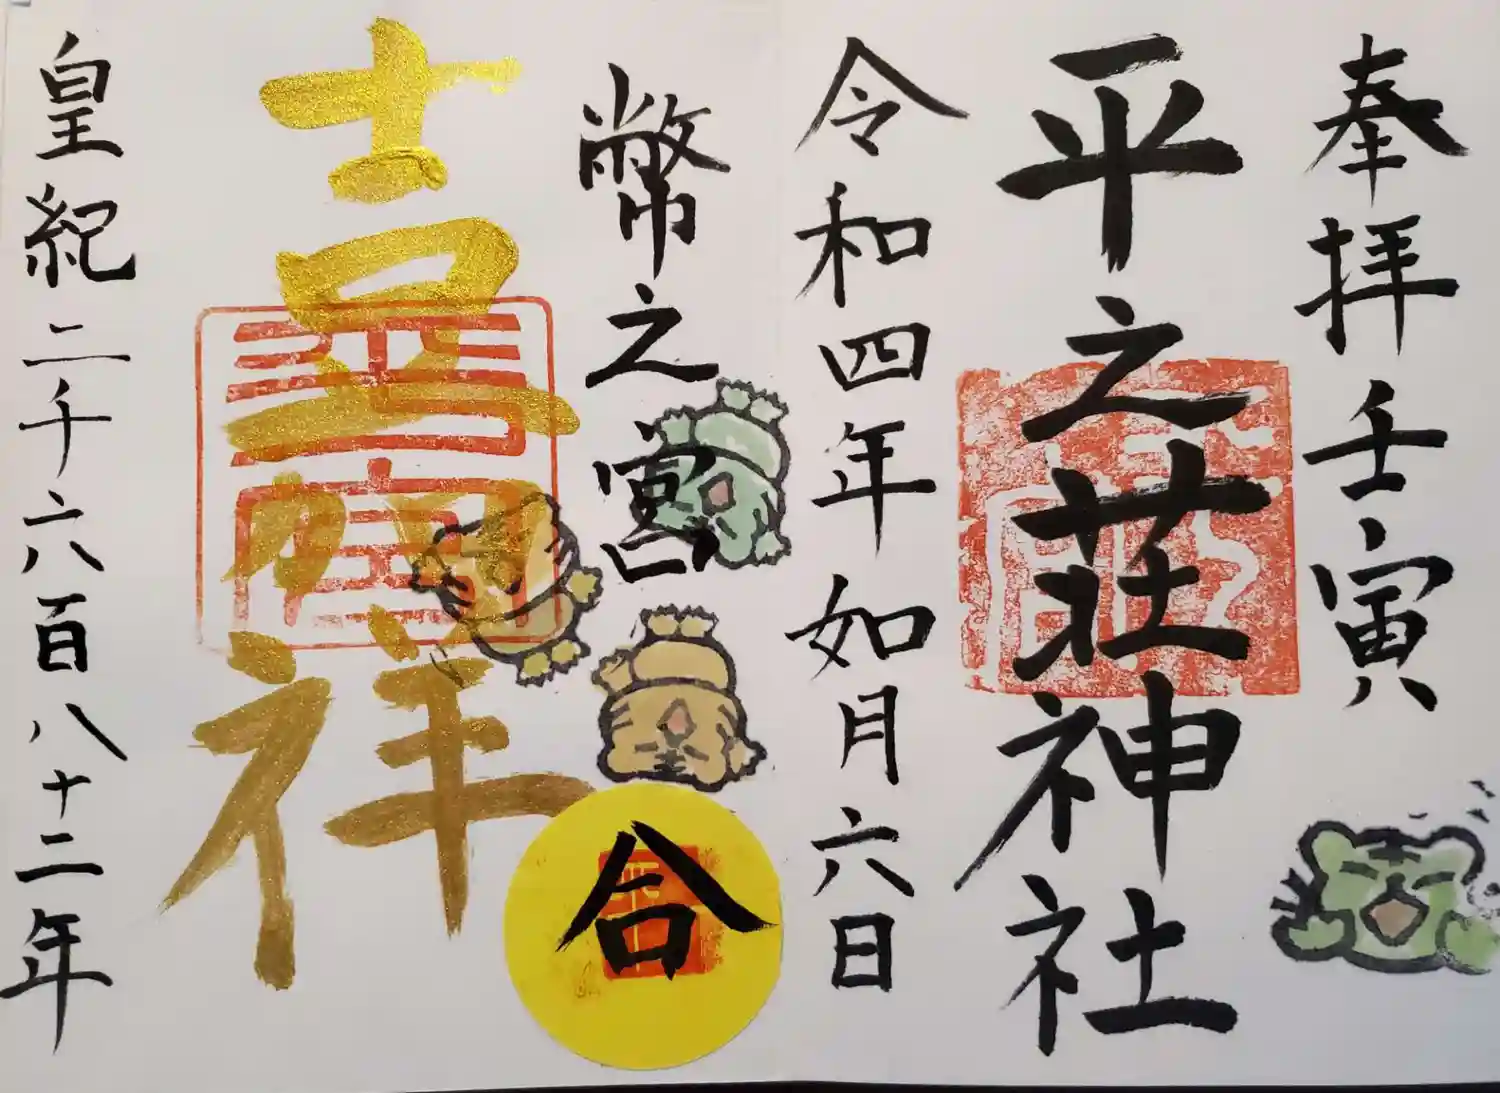 奉拝壬寅八
平之荘神社
令和四年如月六日
幣之宮
合
吉祥
皇紀二千六百八十二年